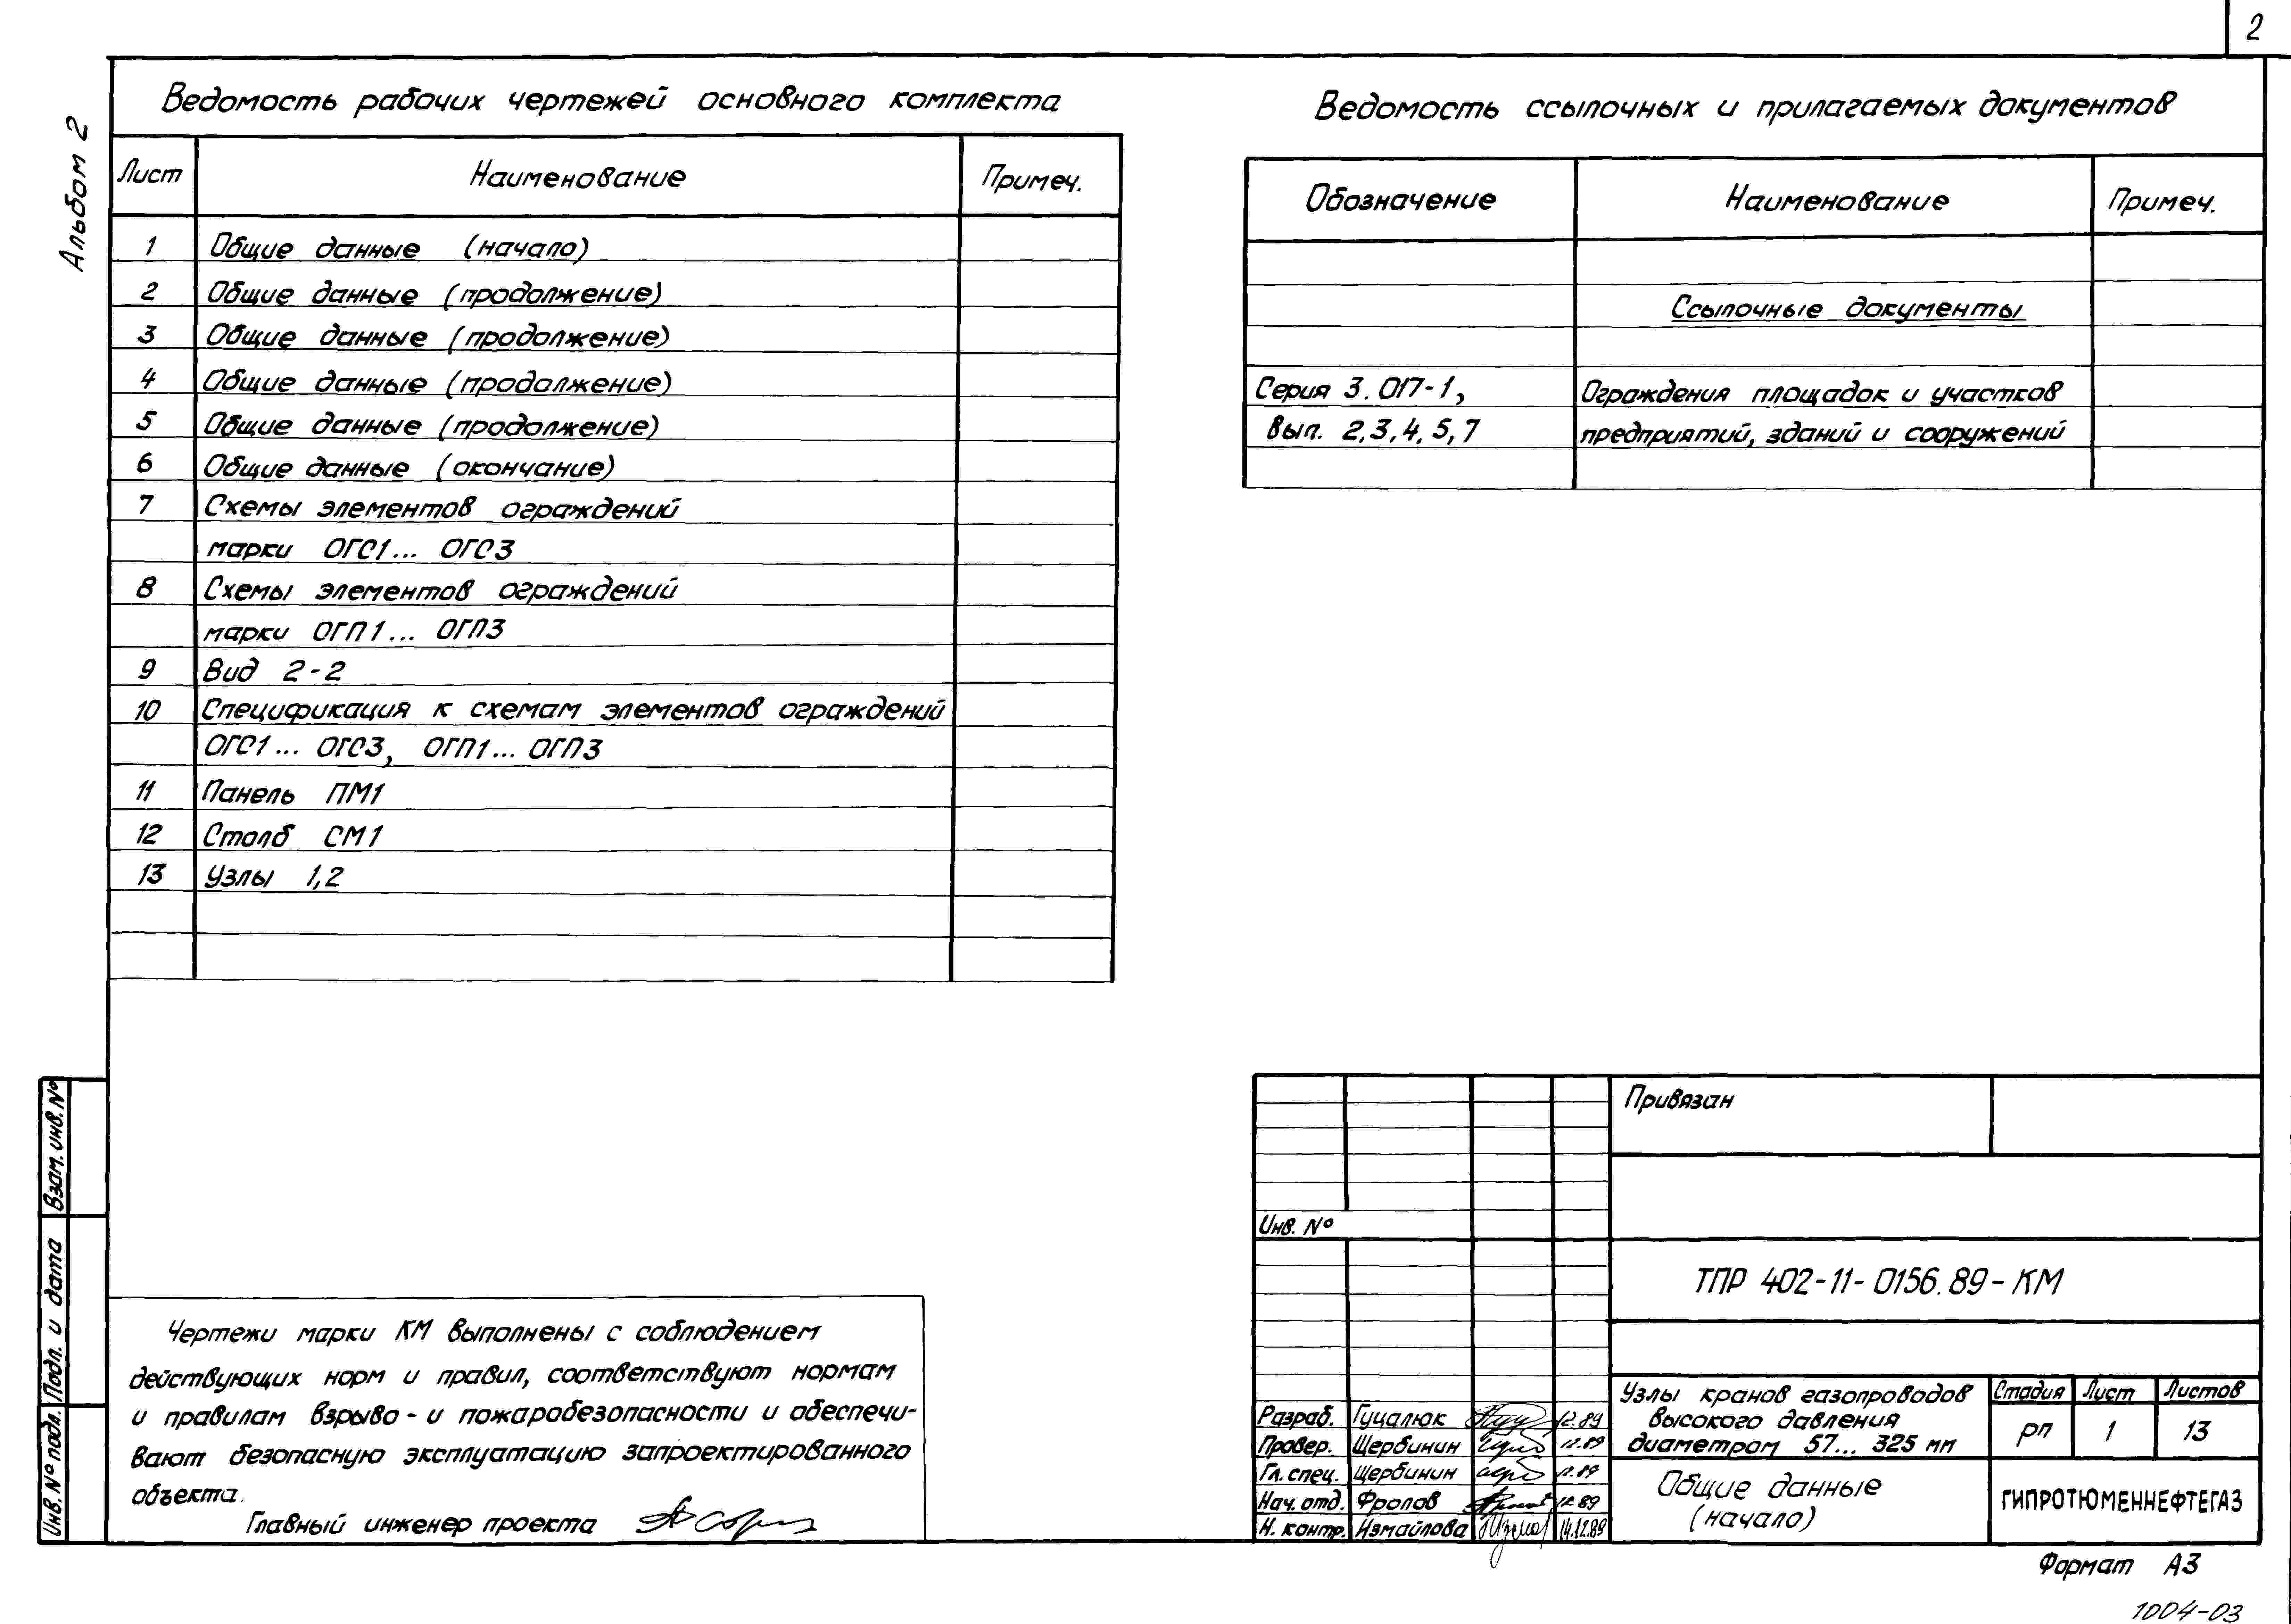 2
Альбом 2
Ведомость рабочих чертежей основного комплекта
Лист Наименование Примеч.
1 Общие данные (начало)
2 Общие данные (продолжение)
3 Общие данные (продолжение)
4 Общие данные (продолжение)
5 Общие данные (продолжение)
6 Общие данные (окончание)
7 Схемы элементов ограждений
марки ОГС1... ОГС3
8 Схемы элементов ограждений
марки ОГП1... ОГП3
9 Вид 2-2
10 Спецификация к схемам элементов ограждений
ОГС1... ОГС3, ОГП1... ОГП3
11 Панель ПМ1
12 Столб СМ1
13 Узлы 1,2
Ведомость ссылочных и прилагаемых документов
Обозначение Наименование Примеч.
Ссылочные документы
Серия 3.017-1, Ограждения площадок и участков
Вып. 2,3,4,5,7 предприятий, зданий и сооружений
Взам. инв. №
Подл. и дата
Инв. № подл.
Чертежи марки КМ выполнены с соблюдением
действующих норм и правил, соответствуют нормам
и правилам взрыво- и пожаробезопасности и обеспечи-
вают безопасную эксплуатацию запроектированного
объекта.
Главный инженер проекта
Привязан
Инв. №
ТПР 402-11-0156.89-КМ
Разраб. Гуцалюк 12.89
Провер. Щербинин 12.89
Гл. спец. Щербинин 12.89
Нач. отд. Фролов 12.89
Н. контр. Измайлова 14.12.89
Узлы кранов газопроводов
высокого давления
диаметром 57... 325 мм
Стадия Лист Листов
РП 1 13
Общие данные
(начало)
ГИПРОТЮМЕННЕФТЕГАЗ
Формат А3
1004-03